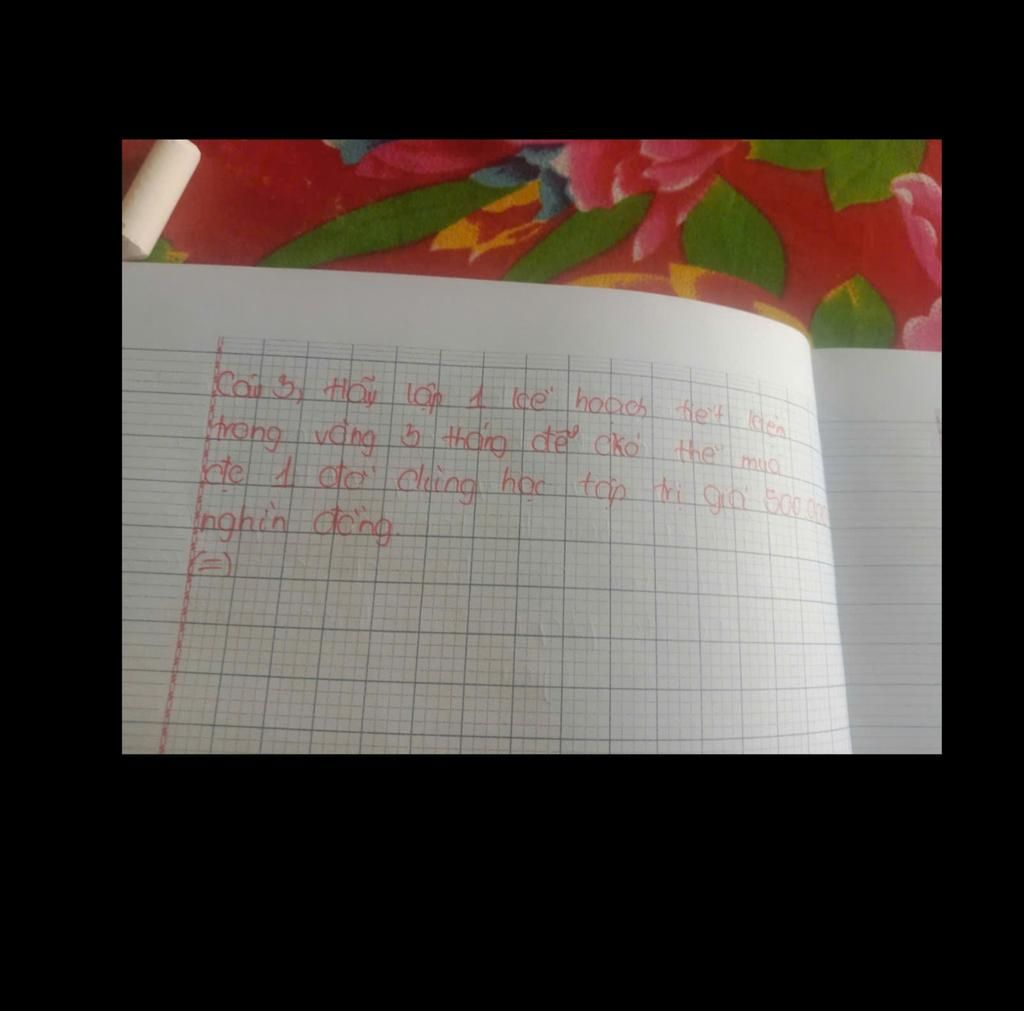 Câu 3, Hãy lập 1 kế hoạch tiết kiện
trong vòng 3 tháng để có thể mua
đc 1 đồ dùng học tập trị giá 500.000
nghìn đồng.
(=)